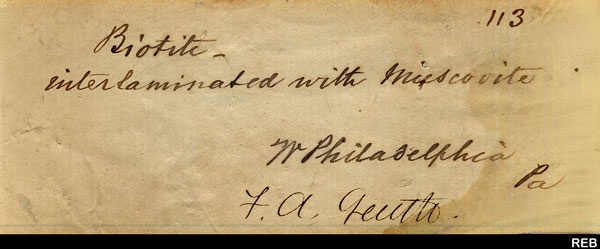 113
Biotite –
interlaminated with Muscovite
W Philadelphia
Pa
F. A. Genth.
REB